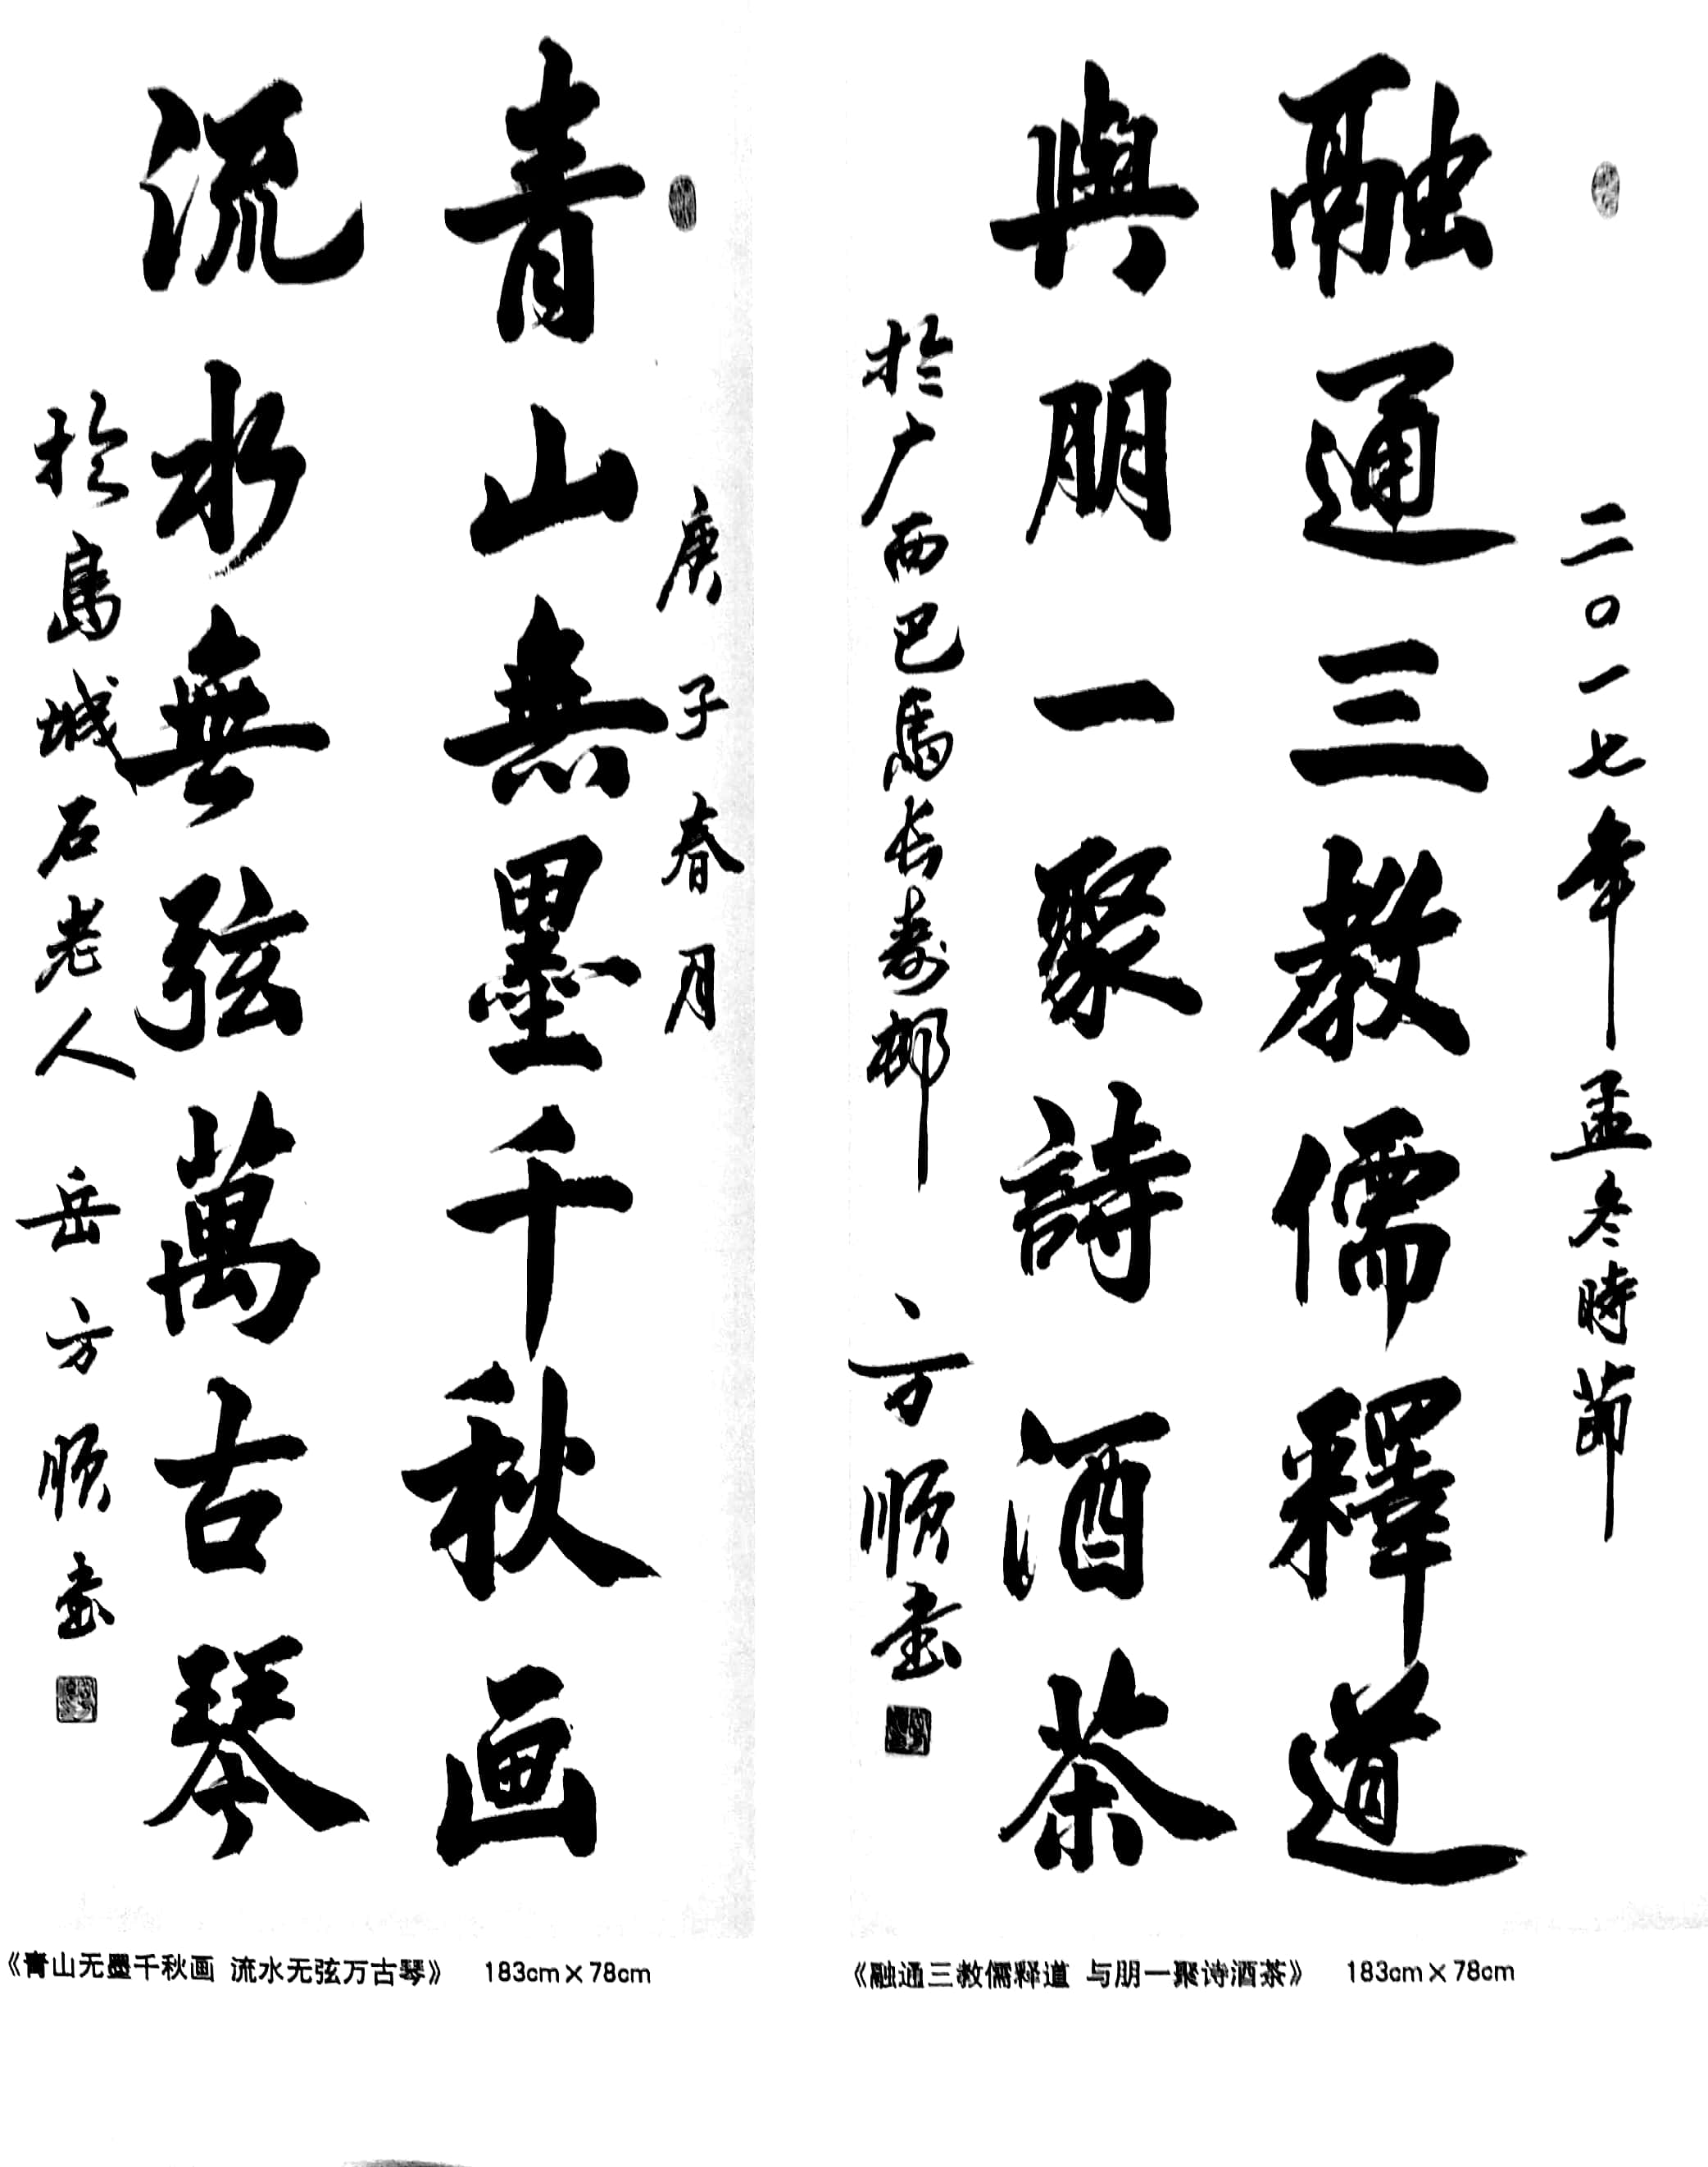 二〇一七年孟冬時節
融通三教儒釋道
與朋一聚詩酒茶
於广西巴馬长寿邨
方順书
庚子春月
青山無墨千秋画
流水無弦萬古琴
於島城石老人
岳方順书
《青山无墨千秋画 流水无弦万古琴》 183cm×78cm
《融通三教儒释道 与朋一聚诗酒茶》 183cm×78cm